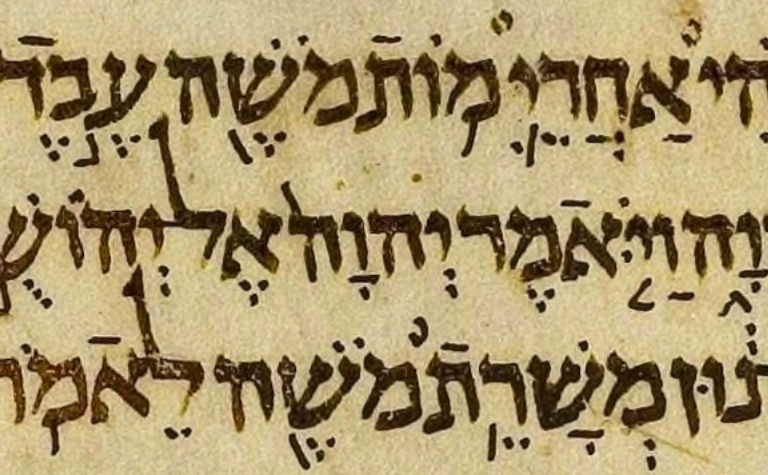 הִ֗י אַחֲרֵ֛י מ֥וֹת מֹשֶׁ֖ה עֶ֣בֶד
וָ֑ה וַיֹּ֤אמֶר יְהוָה֙ אֶל יְהוֹשֻׁ֣
נ֔וּן מְשָׁרֵ֥ת מֹשֶׁ֖ה לֵאמֹֽר